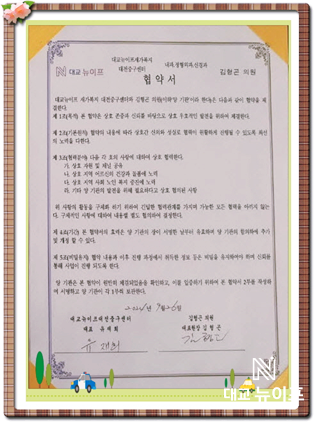 대교뉴이프재가복지
대전중구센터
내과,정형외과,신경과
대교 뉴이프
김형곤 의원
협 약 서
대교뉴이프 재가복지 대전중구센터와 김형곤 의원(이하'양 기관'이라 한다)은 다음과 같이 협약을 체
결한다.
제 1조(목적) 본 협약은 상호 존중과 신뢰를 바탕으로 상호 우호적인 발전을 위하여 체결한다.
제 2조(기본원칙) 협약의 내용에 따라 상호간 신의와 성실로 협약이 원활하게 진행될 수 있도록 최선
의 노력을 다한다.
제 3조(협력분야) 다음 각 호의 사항에 대하여 상호 협력한다.
가. 상호 자원 및 채널 공유
나. 상호 지역 어르신의 건강과 돌봄에 노력
다. 상호 지역 사회 노인 복지 증진에 노력
라. 기타 양 기관의 발전을 위해 필요하다고 상호 협의된 사항
위 사항의 활동을 구체화 하기 위하여 긴밀한 협력관계를 가지며 가능한 모든 협력을 아끼지 않는
다. 구체적인 사항에 대하여 내용별 별도 협의하여 결정한다.
제 4조(기간) 본 협약서의 효력은 양 기관의 장이 서명한 날부터 유효하며 양 기관의 합의하에 추가
및 개정 할 수 있다.
제 5조(비밀유지) 협약 내용과 이후 진행 과정에서 취득한 정보 등은 비밀을 유지하여야 하며 신뢰를
통해 사업이 진행 되도록 한다.
양 기관은 본 협약이 원만히 체결되었음을 확인하고, 이를 입증하기 위하여 본 협약서 2부를 작성하
여 서명하고 양 기관이 각 1부씩 보관한다.
대교뉴이프대전중구센터
김형곤 의원
대표 유 재 희
대표원장 김 형 곤
유 재희
대교 뉴이프